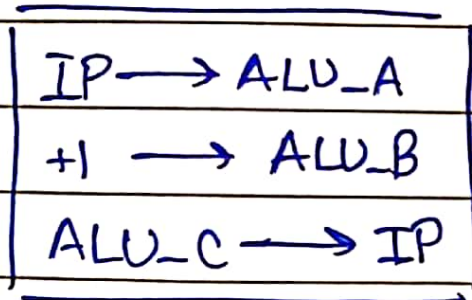 IP → ALU_A
+1 → ALU_B
ALU_C → IP